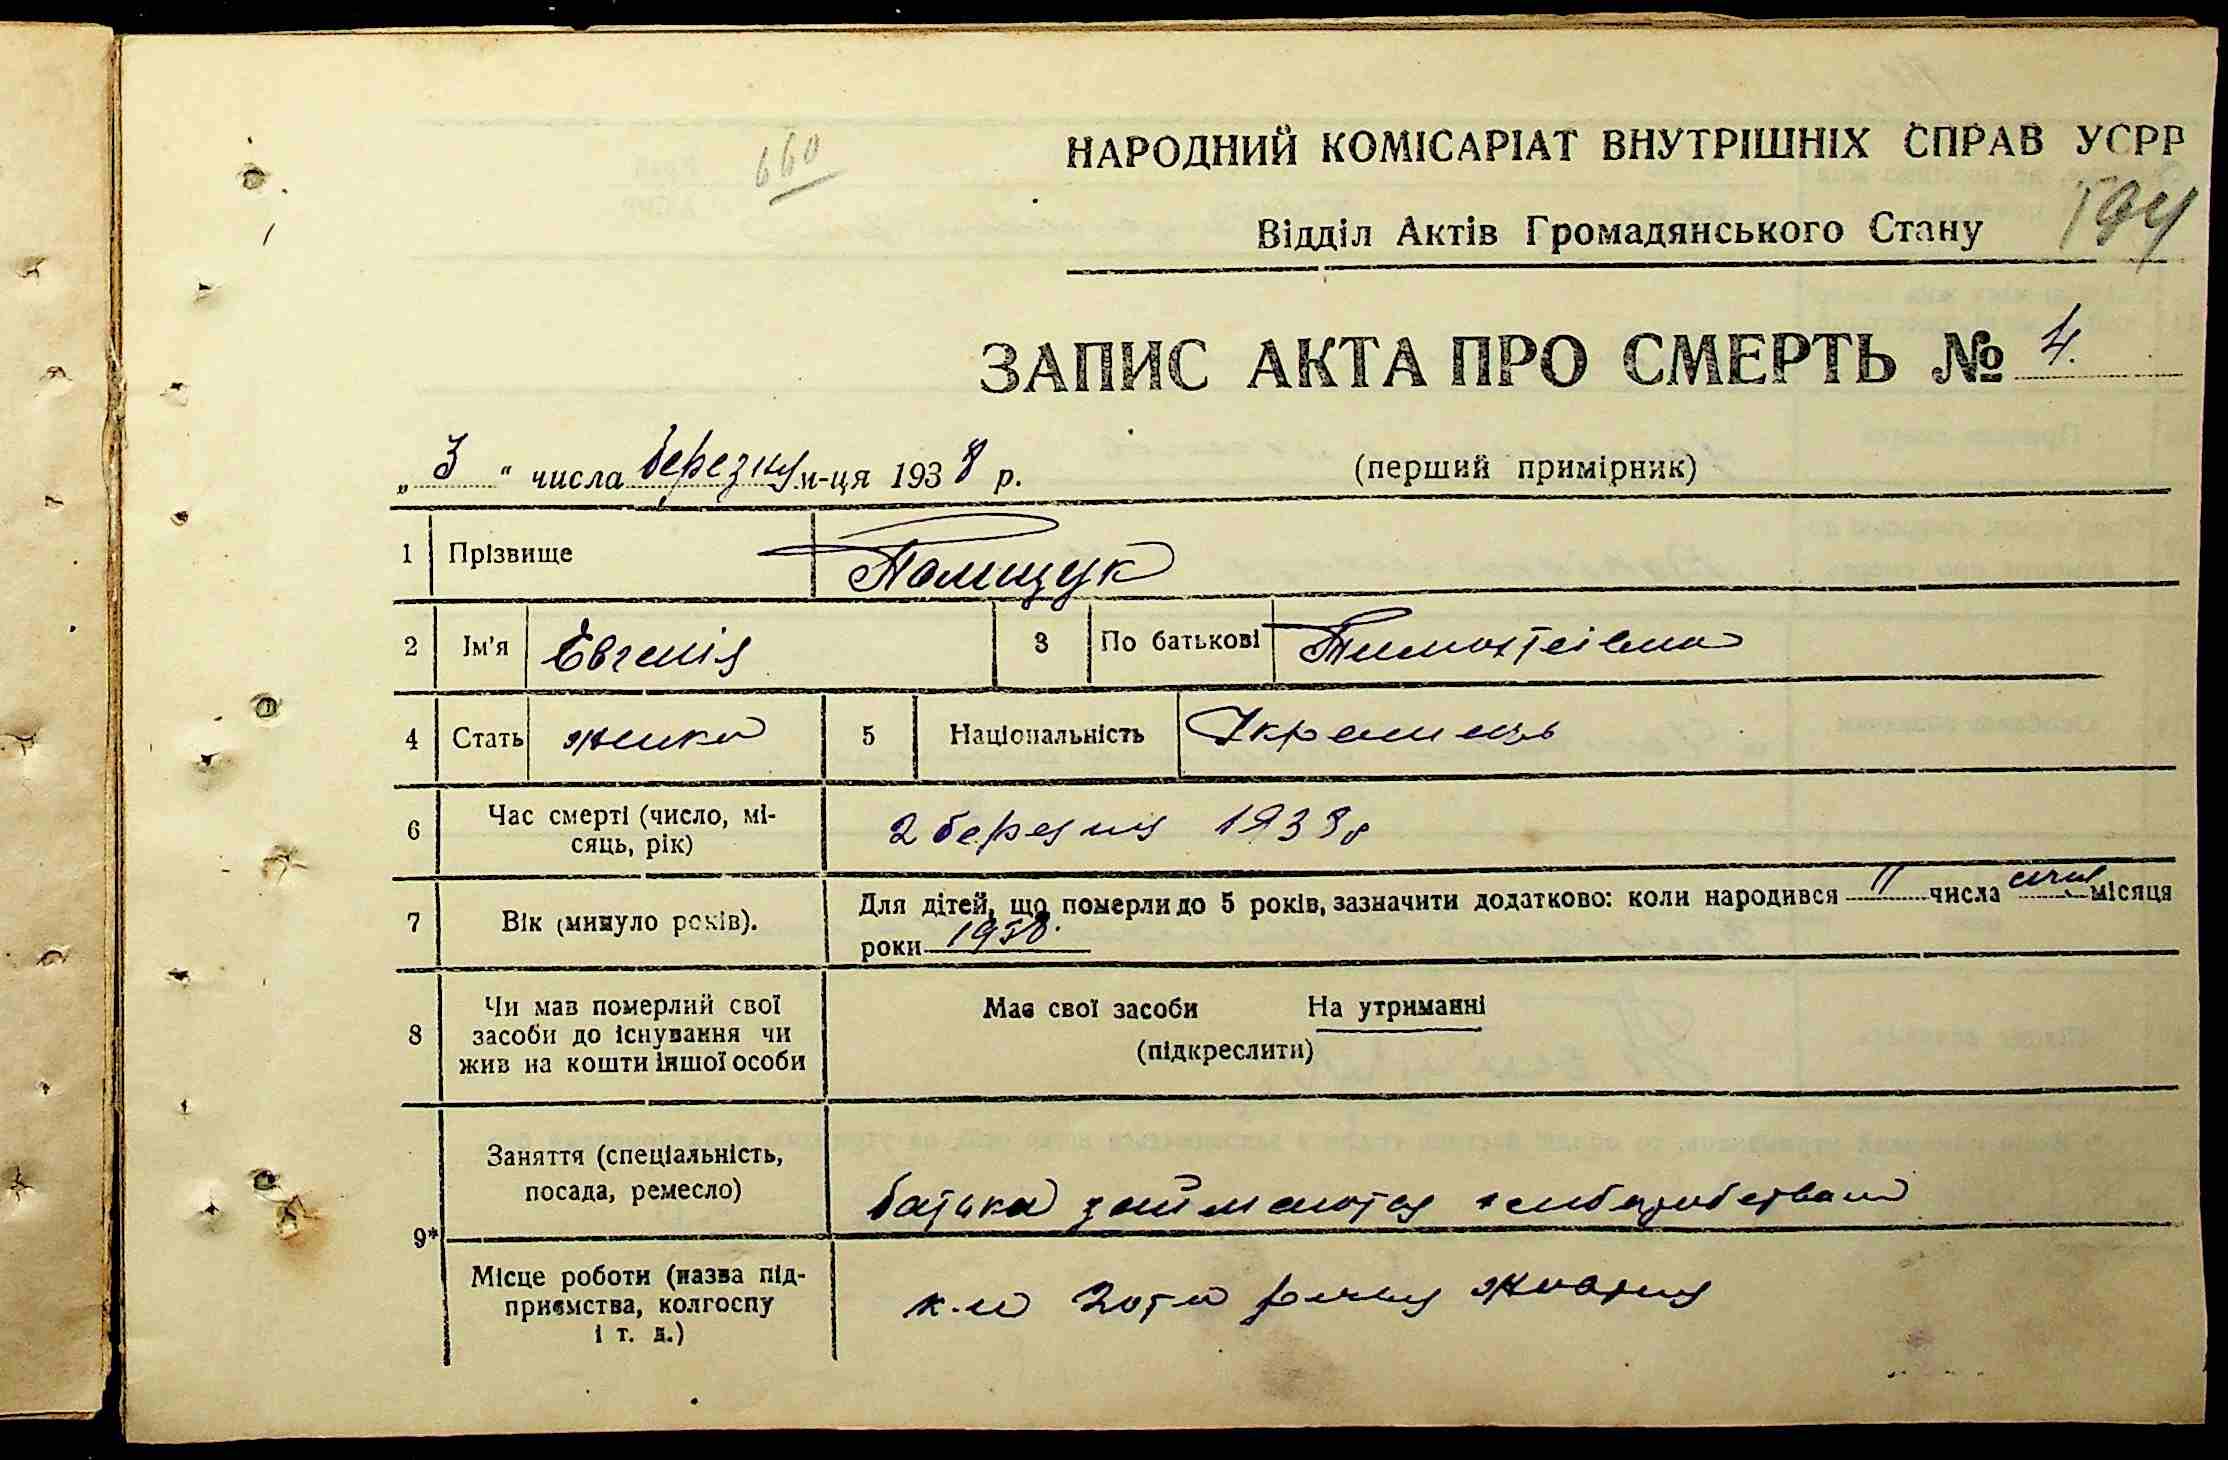 660
НАРОДНИЙ КОМІСАРІАТ ВНУТРІШНІХ СПРАВ УСРР
Відділ Актів Громадянського Стану
ЗАПИС АКТА ПРО СМЕРТЬ № 4.
„ 3 " числа березня м-ця 1938 р. (перший примірник)
1 Прізвище Поліщук
2 Ім'я Євгенія 3 По батькові Тимофіївна
4 Стать жінка 5 Національність Українець
6 Час смерті (число, мі-
сяць, рік) 2 березня 1938 р
7 Вік (минуло років). Для дітей, що померли до 5 років, зазначити додатково: коли народився 11 числа січня місяця
роки 1938.
8 Чи мав померлий свої
засоби до існування чи
жив на кошти іншої особи
Має свої засоби На утриманні
(підкреслити)
9* Заняття (спеціальність,
посада, ремесло)
батьки займаются
Місце роботи (назва під-
приємства, колгоспу
і т. д.)
річчя жовтня